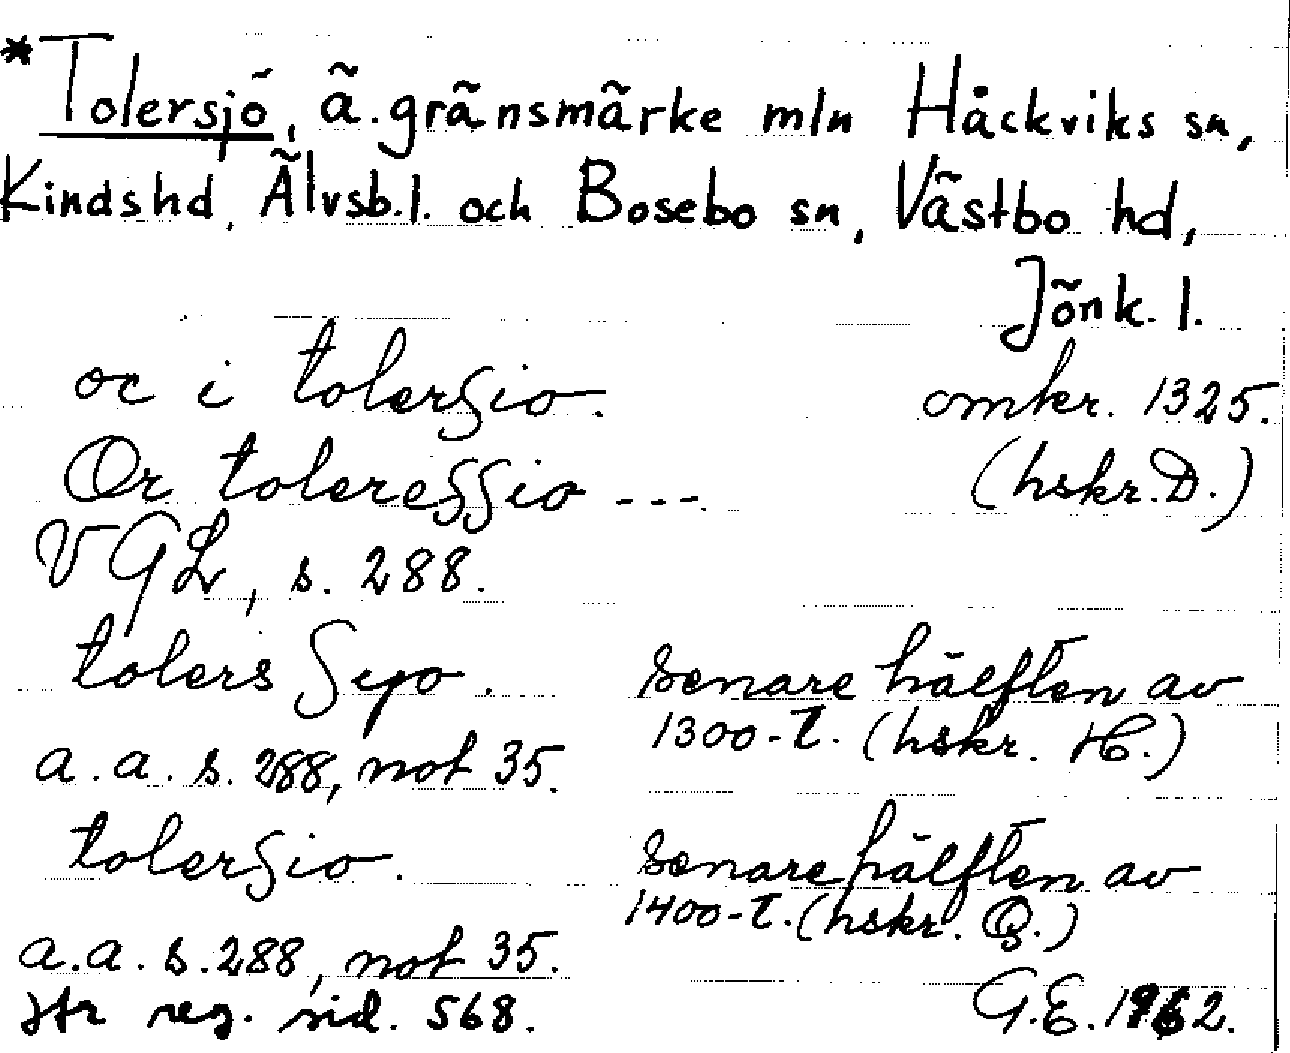 *Tolersjö, ä. gränsmärke mln Håckviks sn,
Kindshd, Älvsb.l. och Bosebo sn, Västbo hd,
Jönk. l.
oc i tolersio. omkr. 1325.
Or toleressio --- (hskr. D.)
VGL, s. 288.
tolers Syo. senare hälften av
1300-t. (hskr. H.)
a.a. s. 288, not 35.
tolersio. senare hälften av
1400-t. (hskr. Q.)
a.a. s. 288, not 35.
jfr reg. sid. 568. G.E. 1962.